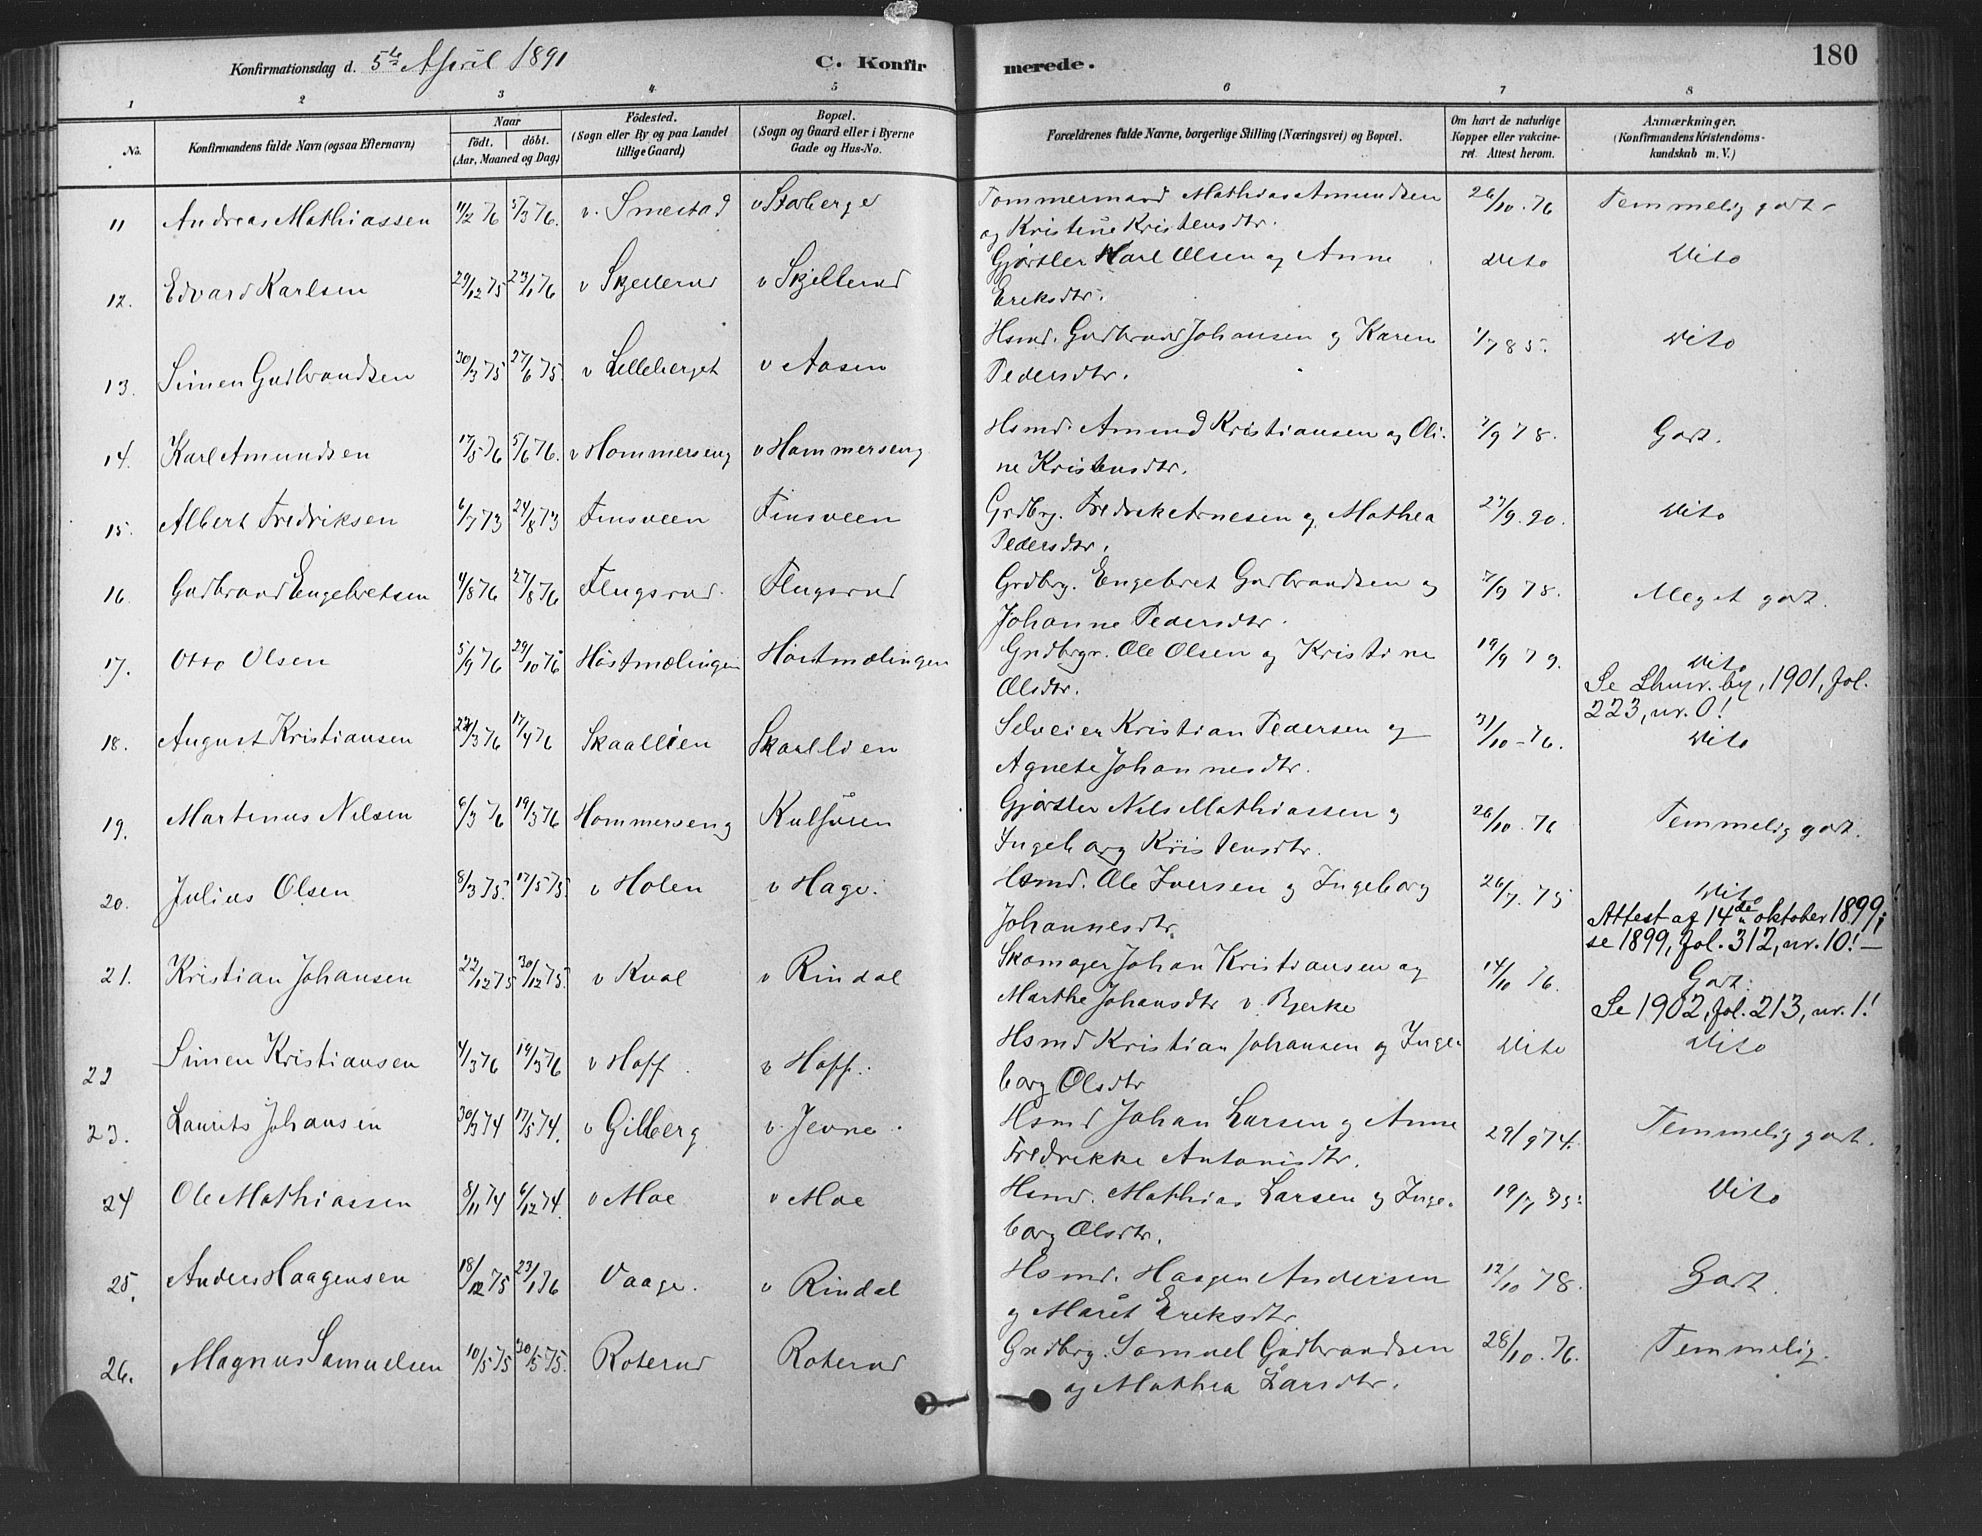 Konfirmationsdag d. 5te April 1891 C. Konfirmerede. 180
1 2 3 4 5 6 7 8
No. Konfirmandens fulde Navn (ogsaa Efternavn) Naar födt. döbt. (Aar, Maaned og Dag) Födested. (Sogn eller By og paa Landet tillige Gaard) Bopæl. (Sogn og Gaard eller i Byerne Gade og Hus-No. Forældrenes fulde Navne, borgerlige Stilling (Næringsvei) og Bopæl. Om havt de naturlige Kopper eller vakcineret. Attest herom. Anmærkninger. (Konfirmandens Kristendomskundskab m. V.)
11 Andreas Mathiassen 11/2 76 5/3 76. v. Smestad v Storberge Tømmermand Mathias Amundsen 26/10. 76 Temmelig godt.
og Kristine Kristensdtr.
12. Edvard Karlsen 29/12 75 23/1 76 v Skjellerud v Skjellerud Gjørtler Karl Olsen og Anne Dito Dito
Eriksdtr.
13. Simen Gudbrandsen 30/3 75 27/6 75. v Lilleberget v Aasen Hsmd. Gudbrand Johansen og Karen 1/7 85. Dito
Pedersdtr.
14. Karl Amundsen 17/5 76 5/6 76. v Hommerseng v Hommerseng Hsmd. Amund Kristiansen og Oli- 7/9 78. Godt.
ne Kristensdtr.
15. Albert Fredriksen 6/7 73 24/8 73 Finsveen Finsveen Grdbrg. Fredrik Arnesen og Mathea 27/9. 90. Dito
Pedersdtr.
16. Gudbrand Engebretsen 4/8 76 27/8 76 Flugsrud. Flugsrud Grdbrg. Engebret Gudbrandsen og 7/9 78. Meget godt.
Johanne Pedersdtr.
17. Otto Olsen 5/9 76 29/10 76 Höstmælingen Höstmælingen Grdbrgr. Ole Olsen og Kristine 19/9 79. Dito
Olsdtr. Se Lhmr. by, 1901, fol.
223, nr. 0!
18. August Kristiansen 22/3 76 17/4 76 Skaallien Skaallien Selveier Kristian Pedersen og 31/10-76. Dito
Agnete Johannesdtr.
19. Martinus Nilsen 6/3 76 19/3 76 Hommerseng Gjørtler Nils Mathiassen og 26/10. 76 Temmelig godt.
Ingeborg Kristensdtr.
20. Julius Olsen 8/3 75. 17/5 75. v Holen v Hage. Hsmd. Ole Iversen og Ingeborg 26/7. 75 Dito
Johannesdtr. Attest af 14de oktober 1899;
se 1899, fol. 312, nr. 10!—
21. Kristian Johansen 22/12 75 30/12 75. v Kval v Rindal Skomager Johan Kristiansen og 14/10 76. Godt.
Marthe Johansdtr v. Bjerke Se 1902, fol. 213, nr. 1!
22 Simen Kristiansen 4/3 76 19/3 76 v Hoff. v Hoff. Hsmd Kristian Johansen og Inge- Dito Dito
borg Olsdtr
23. Laurits Johansen 30/3 74 17/5 74. v Gilberg v. Jevne. Hsmd Johan Larsen og Anne 29/9 74. Temmelig godt.
Fredrikke Antonisdtr.
24 Ole Mathiassen 8/11 74 6/12 74. v Moe v Moe Hsmd. Mathias Larsen og Inge- 19/7 75. Dito
borg Olsdtr.
25. Anders Haagensen 18/12 75 23/1 76 Vaage. v Rindal Hsmd. Haagen Andersen 12/10 78. Godt.
og Marit Eriksdtr.
26. Magnus Samuelsen 10/5 75 30/5 75. Roterud Roterud Grdbrg. Samuel Gudbrandsen 28/10. 76. Temmelig.
og Mathea Larsdtr.